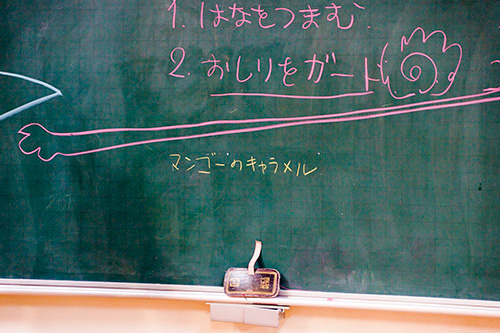 1. はなをつまむ.
2. おしりをガード
マンゴーのキャラメル